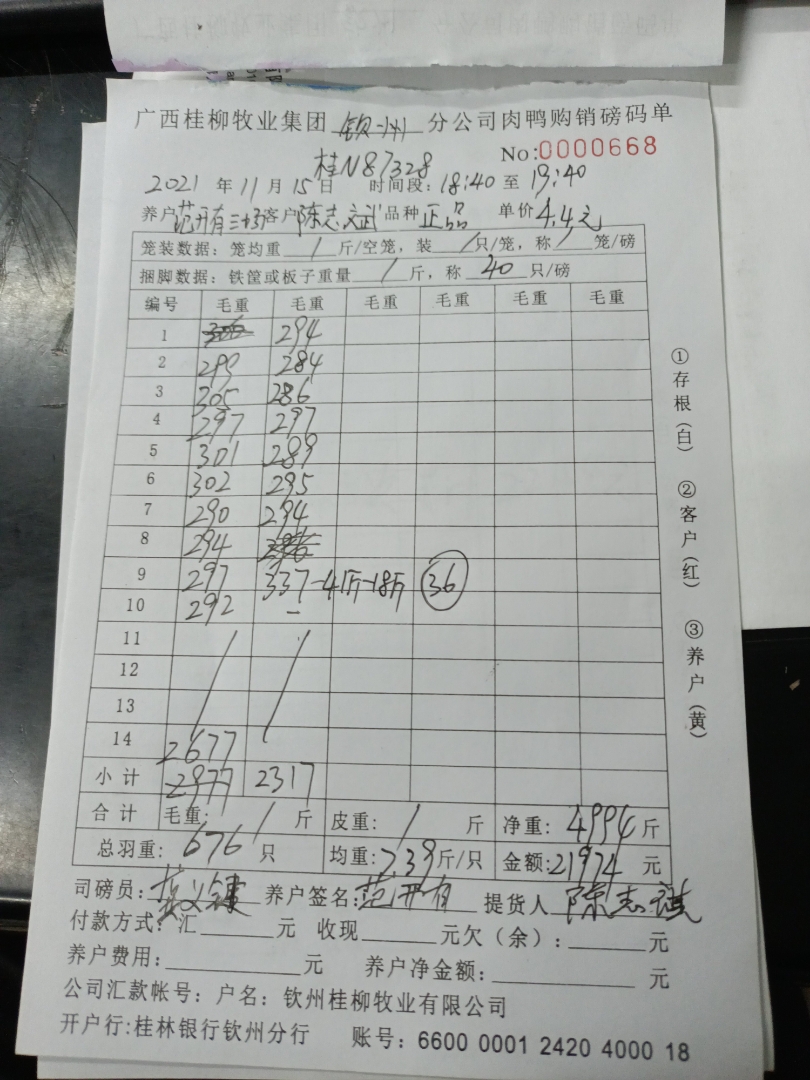 广西桂柳牧业集团 钦州 分公司肉鸭购销磅码单
桂N87328 No:0000668
2021 年 11 月 15 日 时间段: 18:40 至 19:40
养户 范开有三场 客户 陈志文武 品种 正品 单价 4.4元
笼装数据: 笼均重 / 斤/空笼, 装 / 只/笼, 称 / 笼/磅
捆脚数据: 铁筐或板子重量 / 斤, 称 40 只/磅
编号 毛重 毛重 毛重 毛重 毛重 毛重
1 294
2 299 284
3 305 286
4 297 297
5 301 289
6 302 295
7 290 294
8 294
9 297 337-4斤-18斤 36
10 292 -
11
12
13
14 2677
小计 2977 2317
合计 毛重: / 斤 皮重: / 斤 净重: 4994 斤
总羽重: 676 只 均重: 7.39 斤/只 金额: 21974 元
司磅员: 养户签名: 范开有 提货人 陈志
付款方式: 汇 元 收现 元欠(余): 元
养户费用: 元 养户净金额: 元
公司汇款帐号: 户名: 钦州桂柳牧业有限公司
开户行:桂林银行钦州分行 账号: 6600 0001 2420 4000 18
①存根(白) ②客户(红) ③养户(黄)